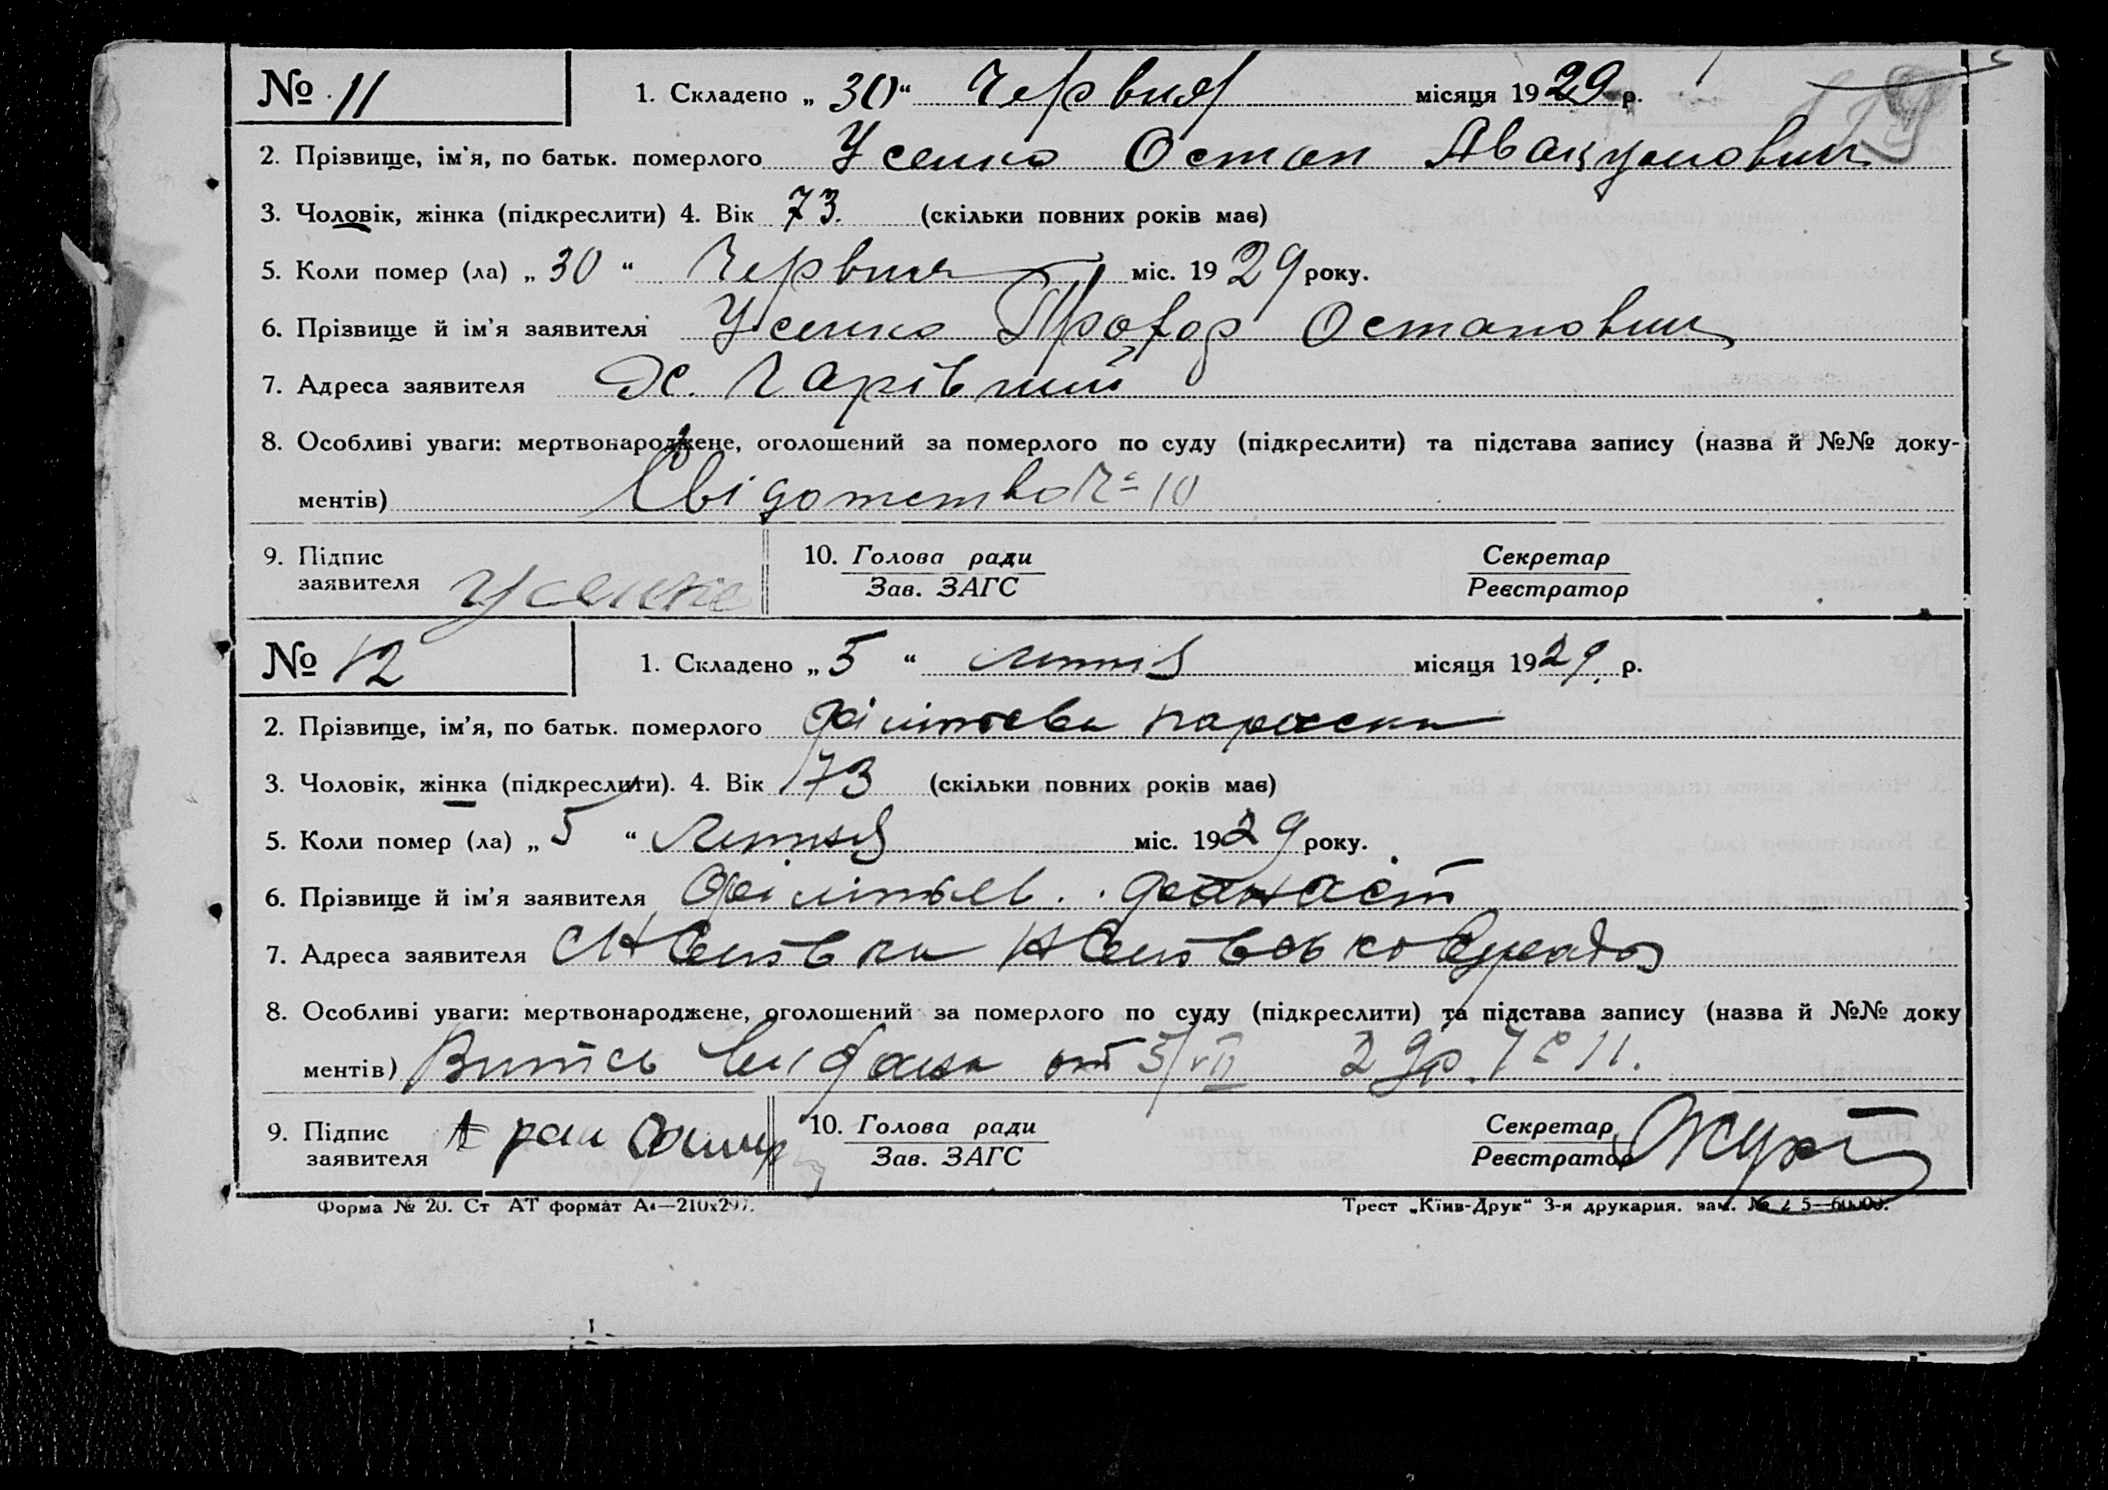 № 11 1. Складено „ 30 “ Червня місяця 1929 р.
2. Прізвище, ім'я, по батьк. померлого Усенко Остап Авакумович
3. Чоловік, жінка (підкреслити) 4. Вік 73. (скільки повних років має)
5. Коли помер (ла) „ 30 “ Червня міс. 1929 року.
6. Прізвище й ім'я заявителя Усенко Прохор Остапович
7. Адреса заявителя Х. Чарівний
8. Особливі уваги: мертвонароджене, оголошений за померлого по суду (підкреслити) та підстава запису (назва й №№ доку-
ментів) Свідотство № 10
9. Підпис заявителя Усенко 10. Голова ради Секретар
Зав. ЗАГС Реєстратор
№ 12 1. Складено „ 5 “ липня місяця 1929. р.
2. Прізвище, ім'я, по батьк. померлого Параска
3. Чоловік, жінка (підкреслити). 4. Вік 73 (скільки повних років має)
5. Коли помер (ла) „ 5 “ Липня міс. 1929 року.
6. Прізвище й ім'я заявителя
7. Адреса заявителя
8. Особливі уваги: мертвонароджене, оголошений за померлого по суду (підкреслити) та підстава запису (назва й №№ доку
ментів) Витяг видана от 5/VII 29р. № 11.
9. Підпис заявителя 10. Голова ради Секретар
Зав. ЗАГС Реєстратор
Форма № 20. Ст АТ формат А4—210х297.
Трест „Київ-Друк“ 3-я друкарня. зам. №